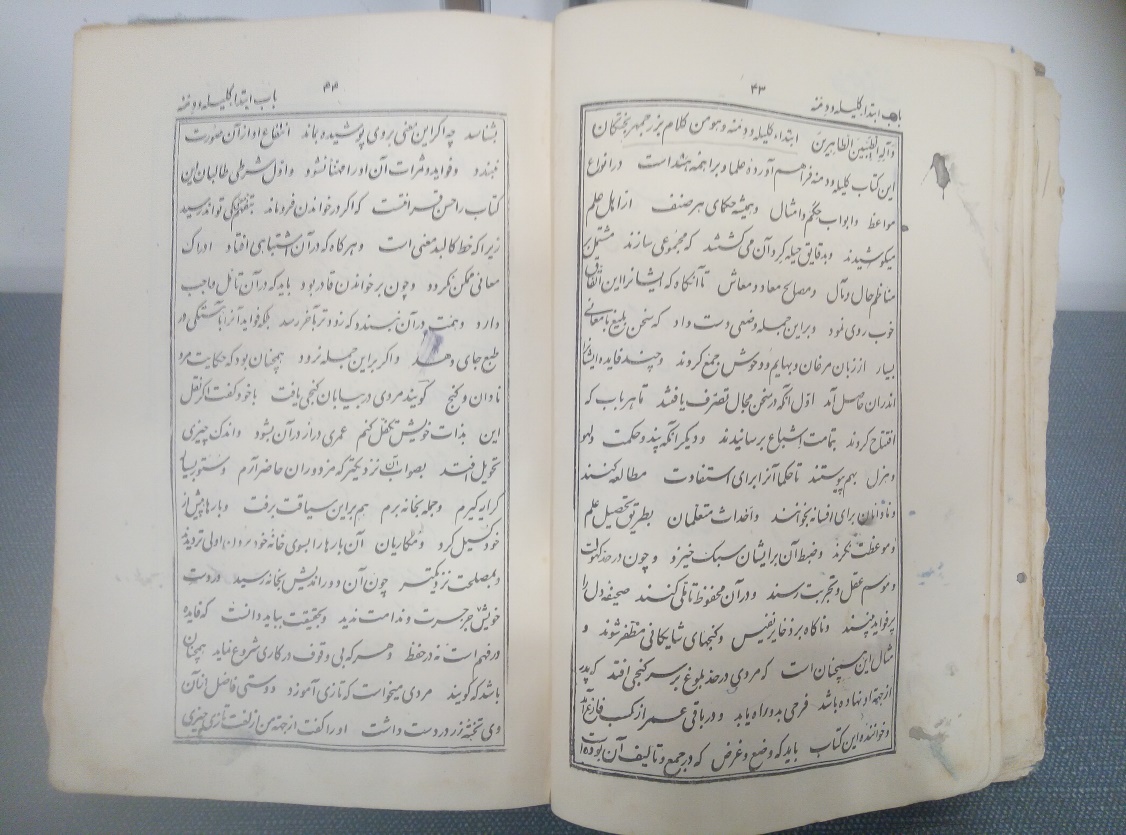 باب ابتدا کلیله و دمنه
۴۳
و آله الطیبین الطاهرین ابتداء کلیله و دمنه و هو من کلام بزرجمهر بختکان
این کتاب کلیله و دمنه فراهم آورده علما و براهمه هند است در انواع
مواعظ و ابواب حکم و امثال و همیشه حکمای هر صنف از اهل علم
میکوشیدند و بدقایق حیله کرد آن می کشتند که مجموعی سازند مشتمل بر
مناظم حال و مآل و مصالح معاد و معاش تا آنکاه که ایشانرا این اتفاق
خوب روی نمود و براین جمله وضعی دست داد که سخن بلیغ با معانی
بسیار از زبان مرغان و بهایم و وحوش جمع کردند و چند فایده ایشانرا
اندران حاصل آمد اول آنکه در سخن مجال تصرف یافتند تا هر باب که
افتتاح کردند بتمامت اشباع برسانیدند و دیگر آنکه پند و حکمت و لهو
و هزل بهم پیوستند تا حکما آنرا برای استفادت مطالعه کنند
و نادانان برای افسانه بخوانند و احداث متعلمان بطریق تحصیل علم
و موعظت نکرند و ضبط آن برایشان سبک خیزد و چون در حد کهولت
و موسم عقل و تجربت رسند و در آن محفوظ تاملی کنند صحیفه دل را
پر فواید بینند و ناکاه بر ذخایر نفیس و کنجهای شایکانی مظفر شوند و
مثال این همچنان است که مردی در حد بلوغ بر سر کنجی افتد که پدر
از جهة او نهاده باشد فرحی بدو راه یابد و در باقی عمر از کسب فارغ آید
و خواننده این کتاب باید که وضع و غرض که در جمع و تالیف آن بوده است
باب ابتدا کلیله و دمنه
۴۴
بشناسد چه اکر این معنی بروی پوشیده بماند انتفاع او از آن صورت
نبندد و فواید و ثمرات آن او را مهنا نشود و اول شرطی طالبان این
کتاب را حسن قرائتست که اکر در خواندن فروماند بتفهم کی تواند رسید
زیرا که خط کالبد معنی است و هرکاه که در آن اشتباهی افتاد ادراک
معانی ممکن نکردد و چون بر خواندن قادر بود باید که در آن تامل واجب
دارد و همت در آن نبندد که زودتر بآخر رسد بلکه فواید آنرا بآهستکی در
طبع جای دهد و اکر براین جمله نرود همچنان بود که حکایت مرد
نادان و کنج کویند مردی در بیابان کنجی یافت با خود کفت اکر نقل
این بذات خویش تکفل کنم عمری دراز در آن بشود و اندک چیزی
تحویل افتد بصواب آن نزدیکتر که مزدوران حاضر آرم و ستور بسیار
کرایه کیرم و جمله بخانه برم هم براین سیاقت برفت و بارها پیش از
خود کسیل کرد و مکاریان آن بارها را بسوی خانه خود بردن اولی تر دیدند
و بمصلحت نزدیکتر چون آن دوراندیش بخانه رسید در دست
خویش جز حسرت و ندامت ندید و بحقیقت بباید دانست که فایده
در فهم است نه در حفظ و هر که بی وقوف در کاری شروع نماید همچنان
باشد که کویند مردی میخواست که تازی آموزد و دوستی فاضل از آن
وی تخته زر در دست داشت او را کفت از جهة من از لغت تازی چیزی